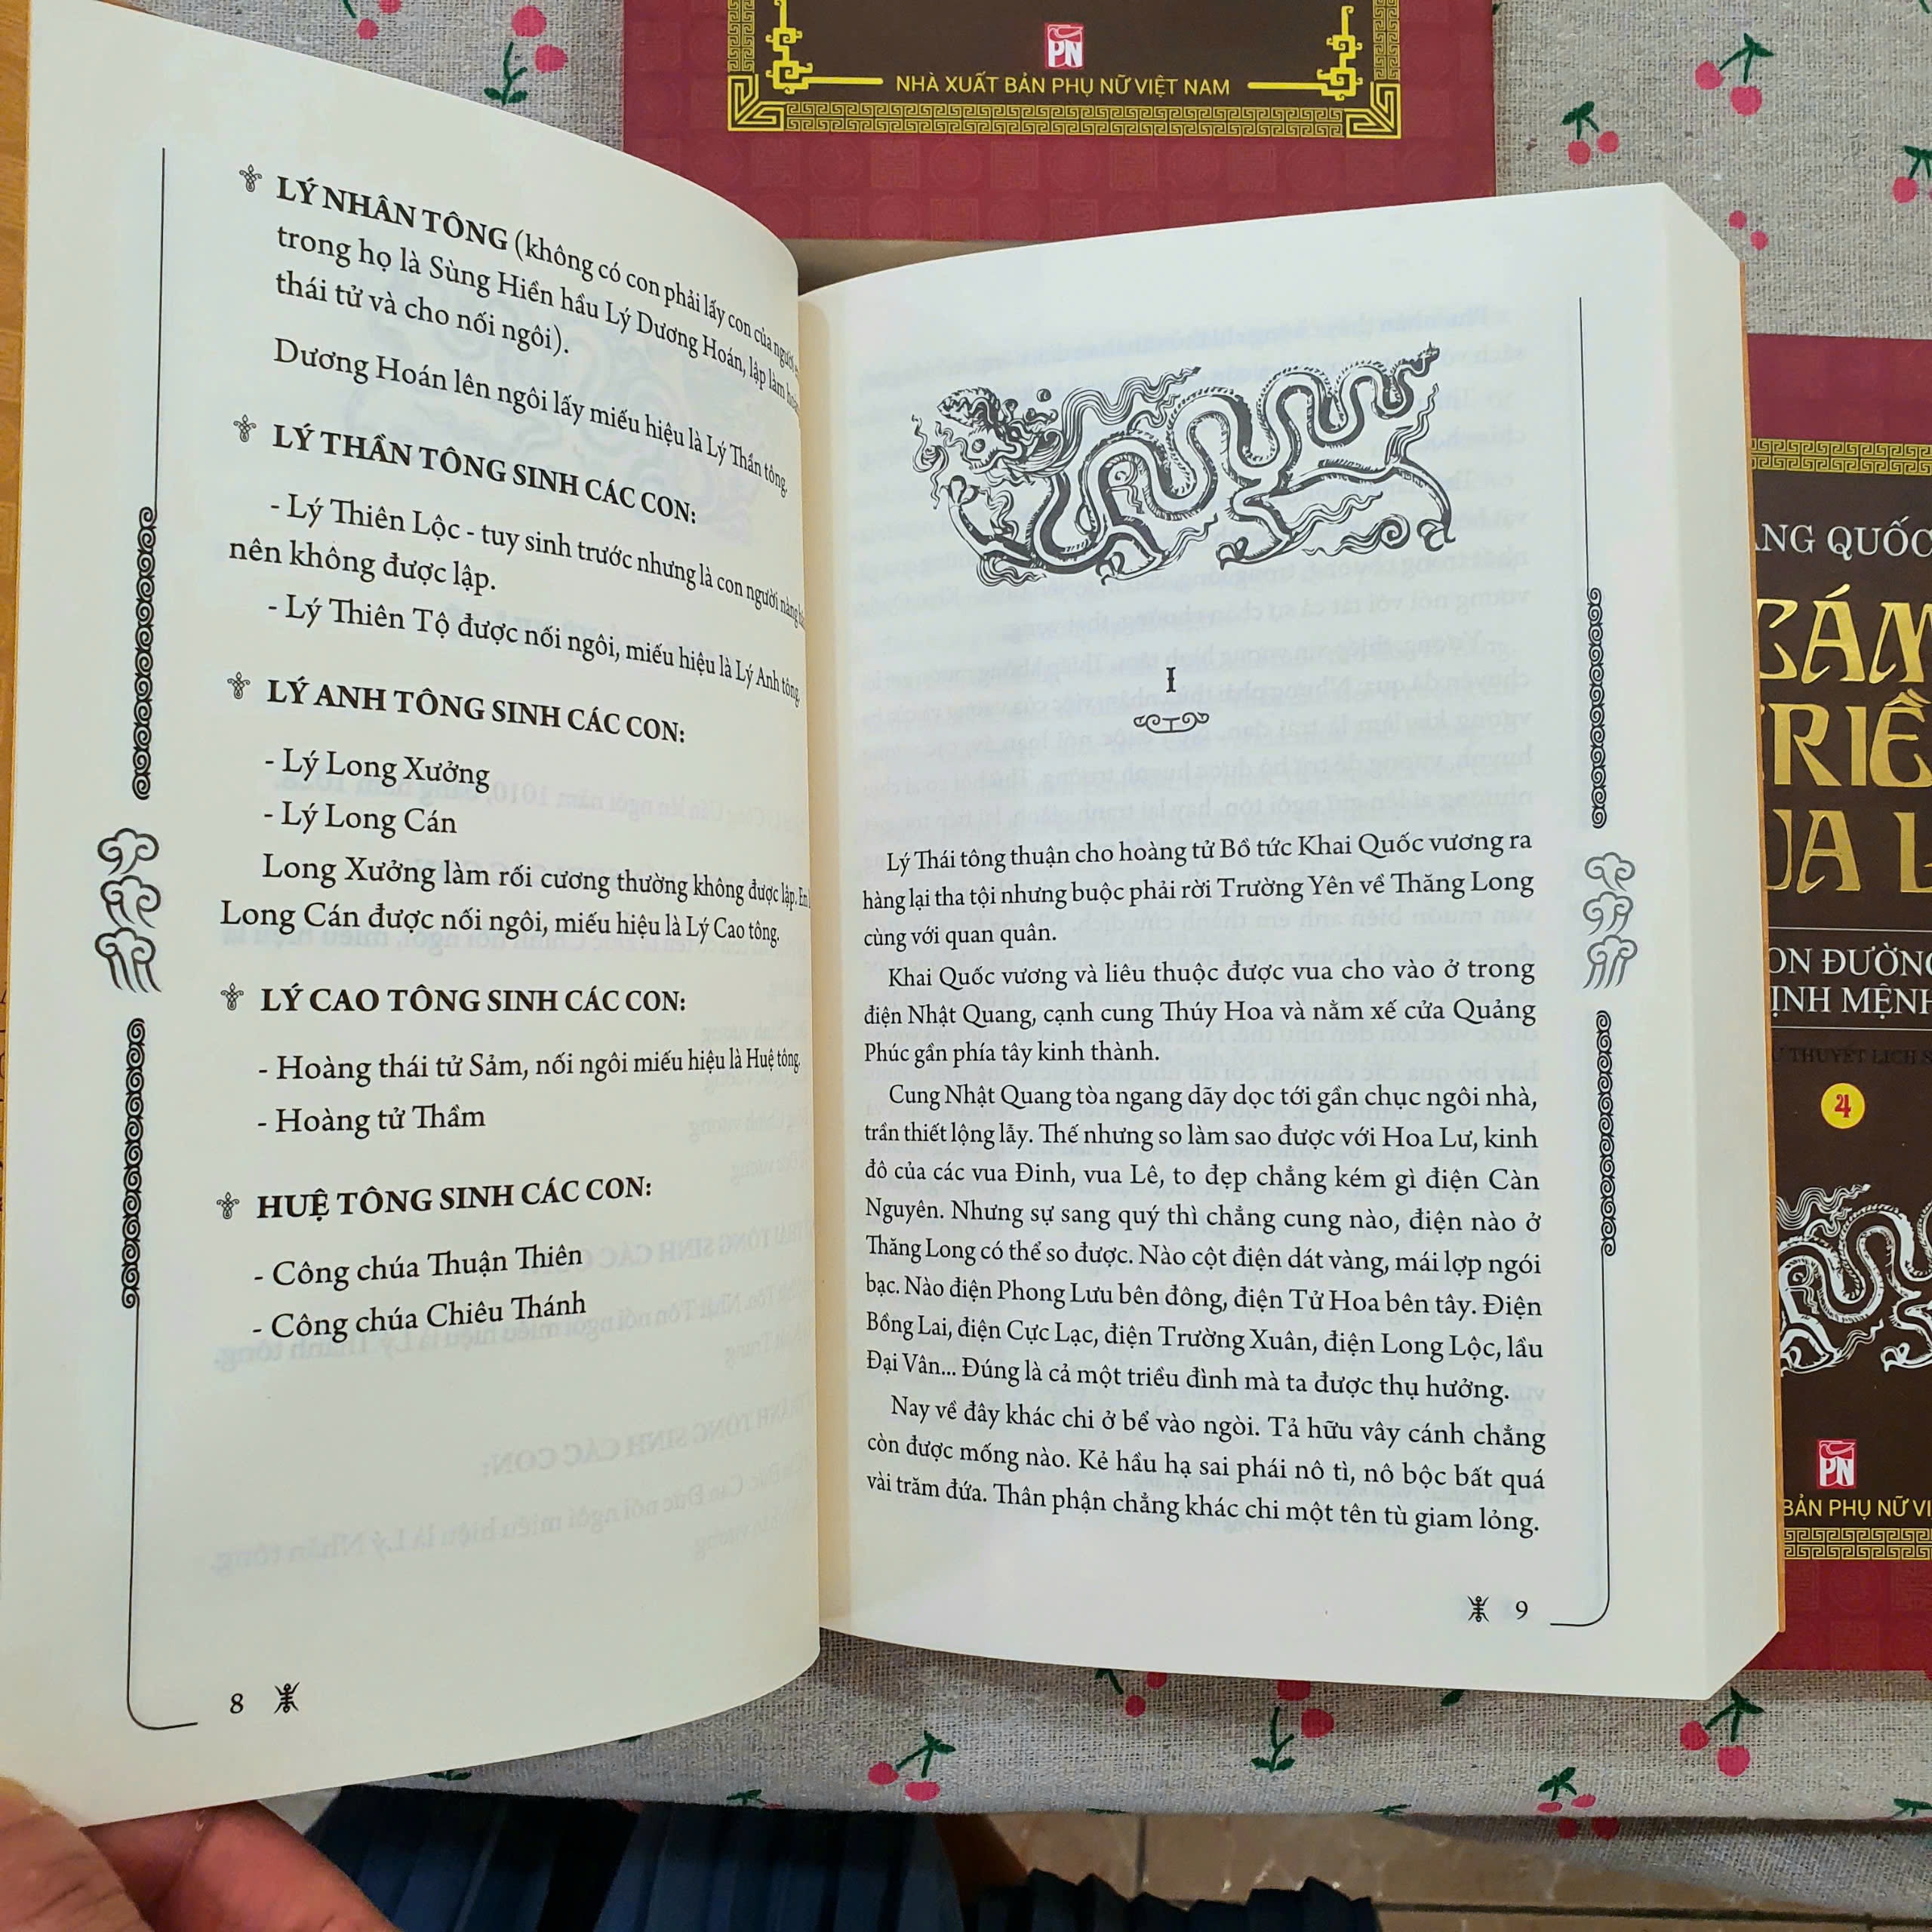 PN
NHÀ XUẤT BẢN PHỤ NỮ VIỆT NAM
LÝ NHÂN TÔNG (không có con phải lấy con của người
trong họ là Sùng Hiền hầu Lý Dương Hoán, lập làm hoàng
thái tử và cho nối ngôi).
Dương Hoán lên ngôi lấy miếu hiệu là Lý Thần tông.
LÝ THẦN TÔNG SINH CÁC CON:
- Lý Thiên Lộc - tuy sinh trước nhưng là con người nàng hầu
nên không được lập.
- Lý Thiên Tộ được nối ngôi, miếu hiệu là Lý Anh tông.
LÝ ANH TÔNG SINH CÁC CON:
- Lý Long Xưởng
- Lý Long Cán
Long Xưởng làm rối cương thường không được lập. Em
Long Cán được nối ngôi, miếu hiệu là Lý Cao tông.
LÝ CAO TÔNG SINH CÁC CON:
- Hoàng thái tử Sảm, nối ngôi miếu hiệu là Huệ tông.
- Hoàng tử Thầm
HUỆ TÔNG SINH CÁC CON:
- Công chúa Thuận Thiên
- Công chúa Chiêu Thánh
8
I
Lý Thái tông thuận cho hoàng tử Bồ tức Khai Quốc vương ra
hàng lại tha tội nhưng buộc phải rời Trường Yên về Thăng Long
cùng với quan quân.
Khai Quốc vương và liêu thuộc được vua cho vào ở trong
điện Nhật Quang, cạnh cung Thúy Hoa và nằm xế cửa Quảng
Phúc gần phía tây kinh thành.
Cung Nhật Quang tòa ngang dãy dọc tới gần chục ngôi nhà,
trần thiết lộng lẫy. Thế nhưng so làm sao được với Hoa Lư, kinh
đô của các vua Đinh, vua Lê, to đẹp chẳng kém gì điện Càn
Nguyên. Nhưng sự sang quý thì chẳng cung nào, điện nào ở
Thăng Long có thể so được. Nào cột điện dát vàng, mái lợp ngói
bạc. Nào điện Phong Lưu bên đông, điện Tử Hoa bên tây. Điện
Bồng Lai, điện Cực Lạc, điện Trường Xuân, điện Long Lộc, lầu
Đại Vân... Đúng là cả một triều đình mà ta được thụ hưởng.
Nay về đây khác chi ở bể vào ngòi. Tả hữu vây cánh chẳng
còn được mống nào. Kẻ hầu hạ sai phái nô tì, nô bộc bất quá
vài trăm đứa. Thân phận chẳng khác chi một tên tù giam lỏng.
9
QUỐC
ĐƯỜNG
MỆNH
THUYẾT LỊCH
4
PN
BẢN PHỤ NỮ